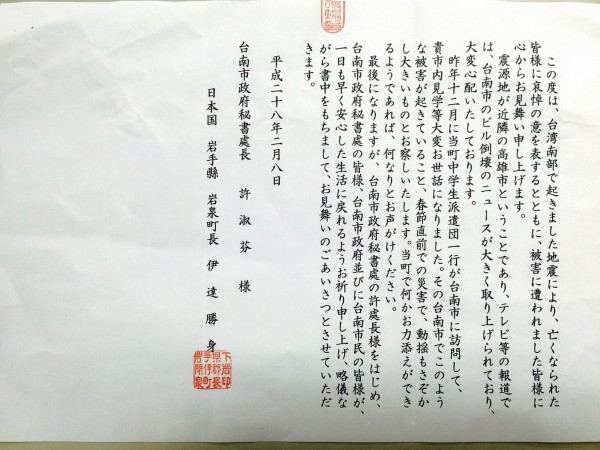 この度は、台湾南部で起きました地震により、亡くなられた
皆様に哀悼の意を表するとともに、被害に遭われました皆様に
心からお見舞い申し上げます。
震源地が近隣の高雄市ということであり、テレビ等の報道で
は、台南市のビル倒壊のニュースが大きく取り上げられており、
大変心配いたしております。
昨年十二月に当町中学生派遣団一行が台南市に訪問して、
貴市内見学等大変お世話になりました。その台南市でこのよう
な被害が起きていること、春節直前での災害で、動揺もさぞか
し大きいものとお察しいたします。当町で何かお力添えができ
るようであれば、何なりとお声がけください。
最後になりますが、台南市政府秘書處の許處長様をはじめ、
台南市政府秘書處の皆様、台南市政府並びに台南市民の皆様が、
一日も早く安心した生活に戻れるようお祈り申し上げ、略儀な
がら書中をもちまして、お見舞いのごあいさつとさせていただ
きます。
平成二十八年二月八日
台南市政府秘書處長 許淑芬 様
日本国 岩手縣 岩泉町長 伊達勝身